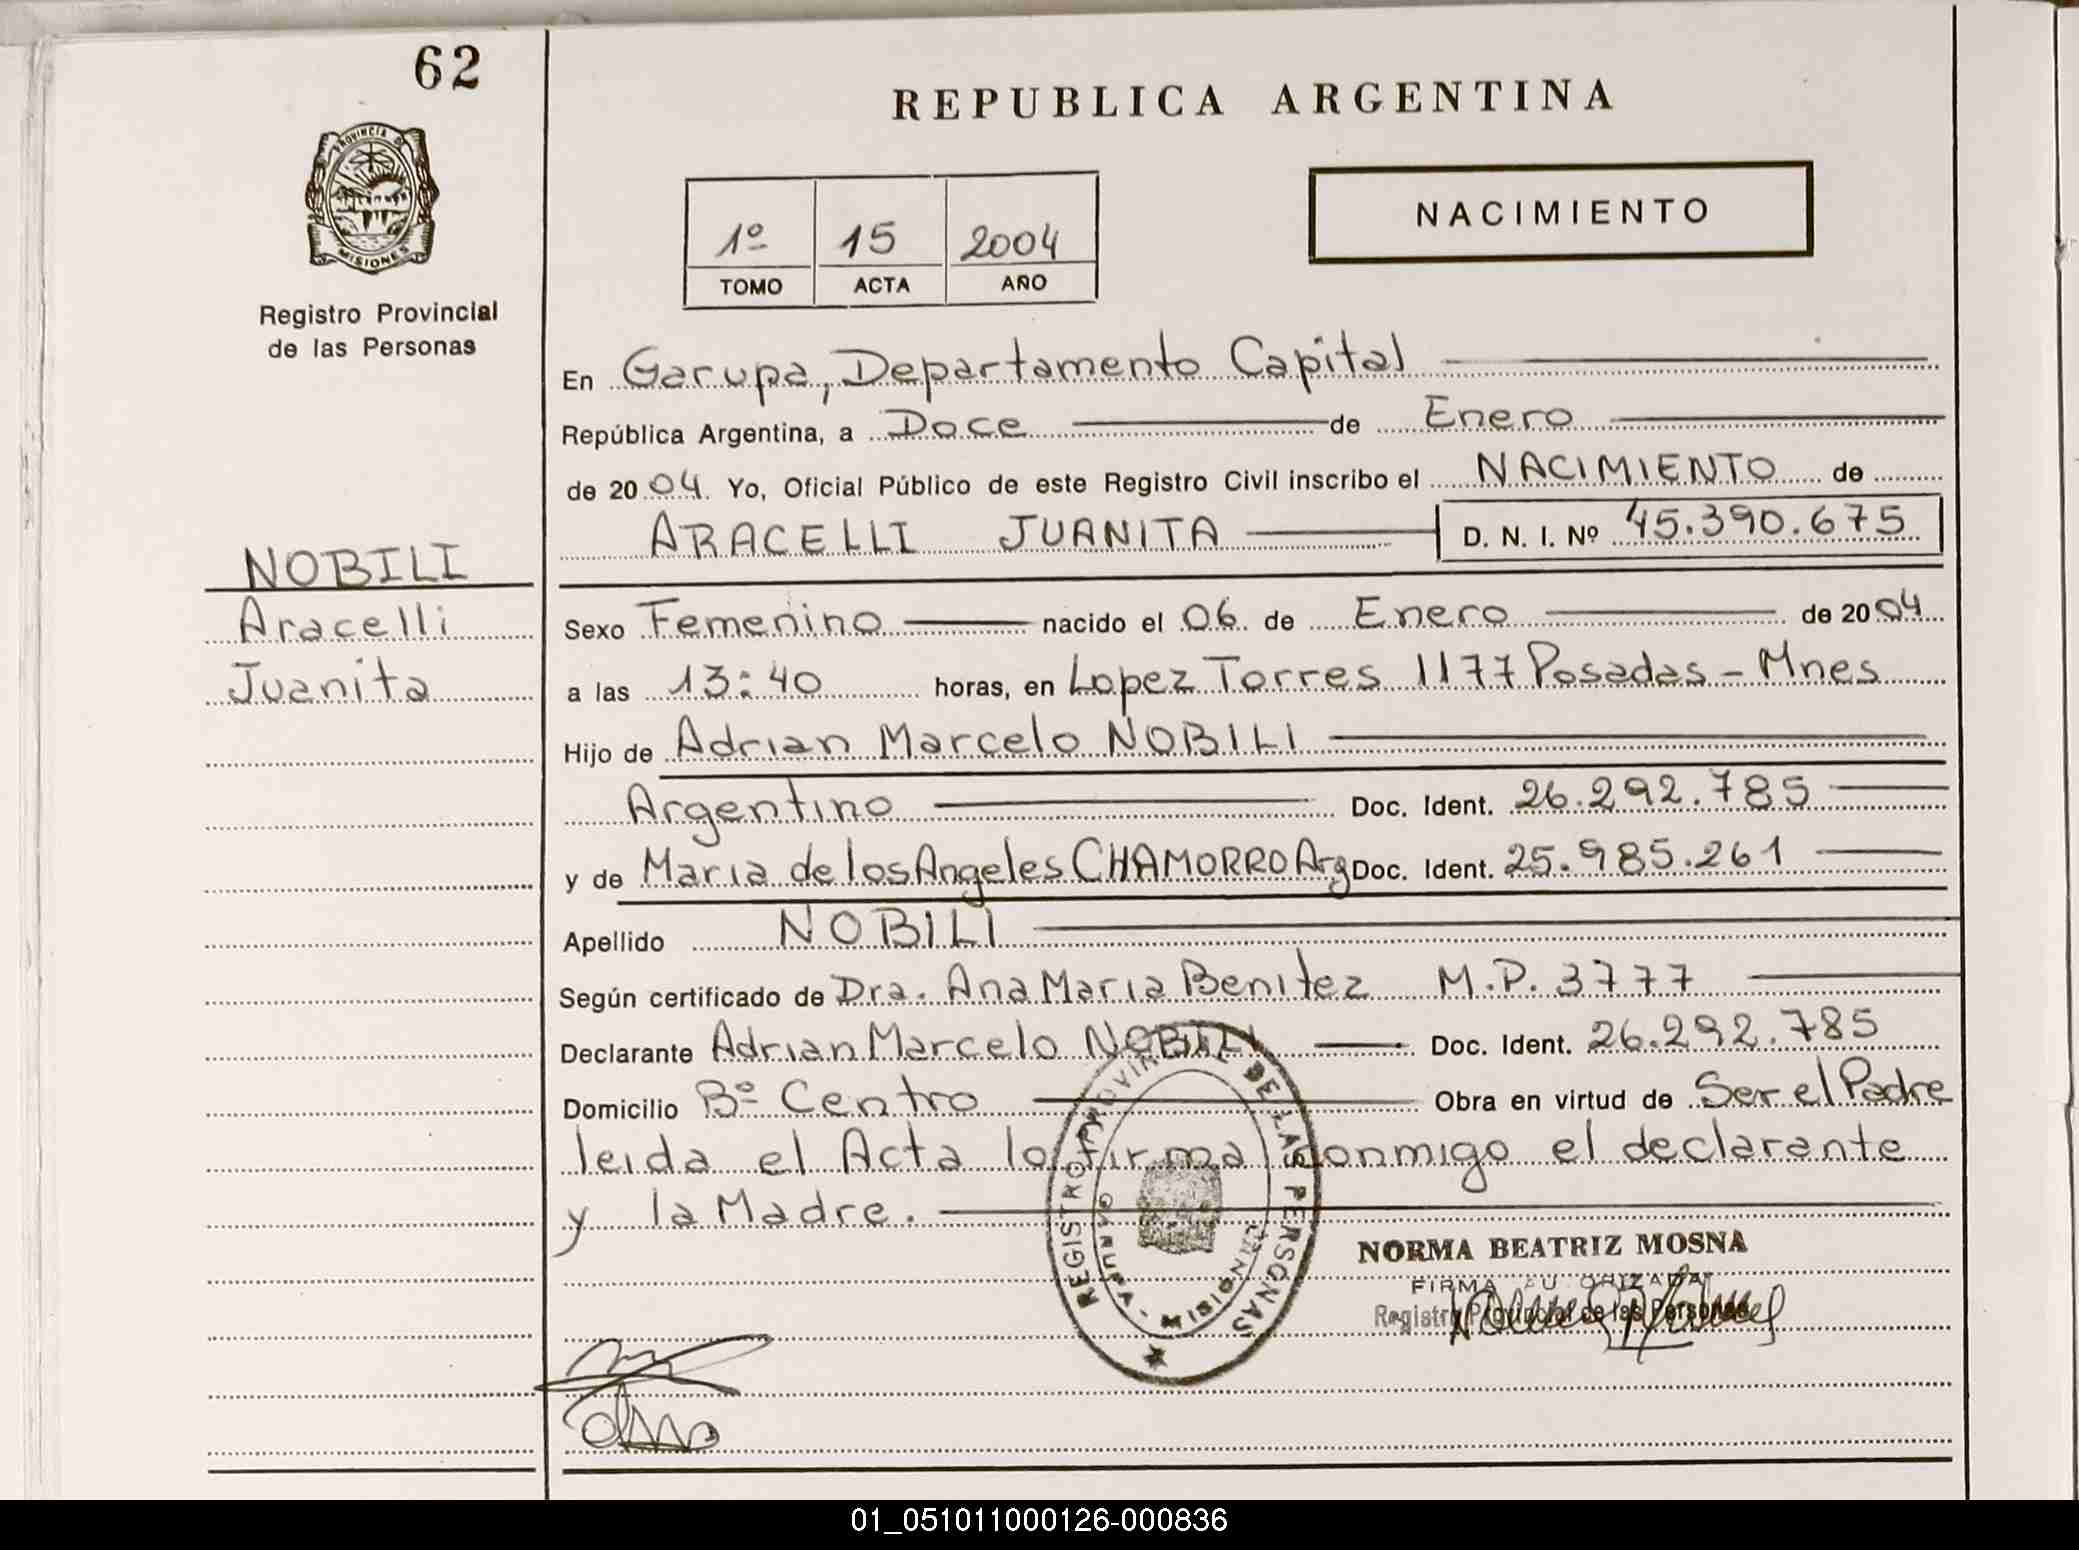 62
REPUBLICA ARGENTINA
PROVINCIA DE
MISIONES
Registro Provincial
de las Personas
1º 15 2004
TOMO ACTA AÑO
NACIMIENTO
En Garupa, Departamento Capital
República Argentina, a Doce de Enero
de 2004 Yo, Oficial Público de este Registro Civil inscribo el NACIMIENTO de
ARACELLI JUANITA D. N. I. Nº 45.390.675
NOBILI
Aracelli
Juanita
Sexo Femenino nacido el 06 de Enero de 2004
a las 13:40 horas, en Lopez Torres 1177 Posadas - Mnes
Hijo de Adrian Marcelo NOBILI
Argentino Doc. Ident. 26.292.785
y de Maria de los Angeles CHAMORRO Arg Doc. Ident. 25.985.261
Apellido NOBILI
Según certificado de Dra. Ana Maria Benitez M.P. 3777
Declarante Adrian Marcelo NOBILI Doc. Ident. 26.292.785
Domicilio Bº Centro Obra en virtud de Ser el Padre
leida el Acta lo firma conmigo el declarante
y la Madre.
REGISTRO PROVINCIAL DE LAS PERSONAS
GARUPA - MISIONES
NORMA BEATRIZ MOSNA
FIRMA AUTORIZADA
Registro Provincial de las Personas
01_051011000126-000836